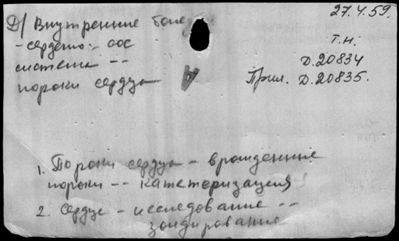 Д/ Внутренние боле
27.4.59.
- сердечно-сос
Т.н.
система --
Д.20834
пороки сердца
Прил. Д.20835.
1. Пороки сердца - врожденные
пороки -- катетеризация
2. Сердце - исследование --
зондирование